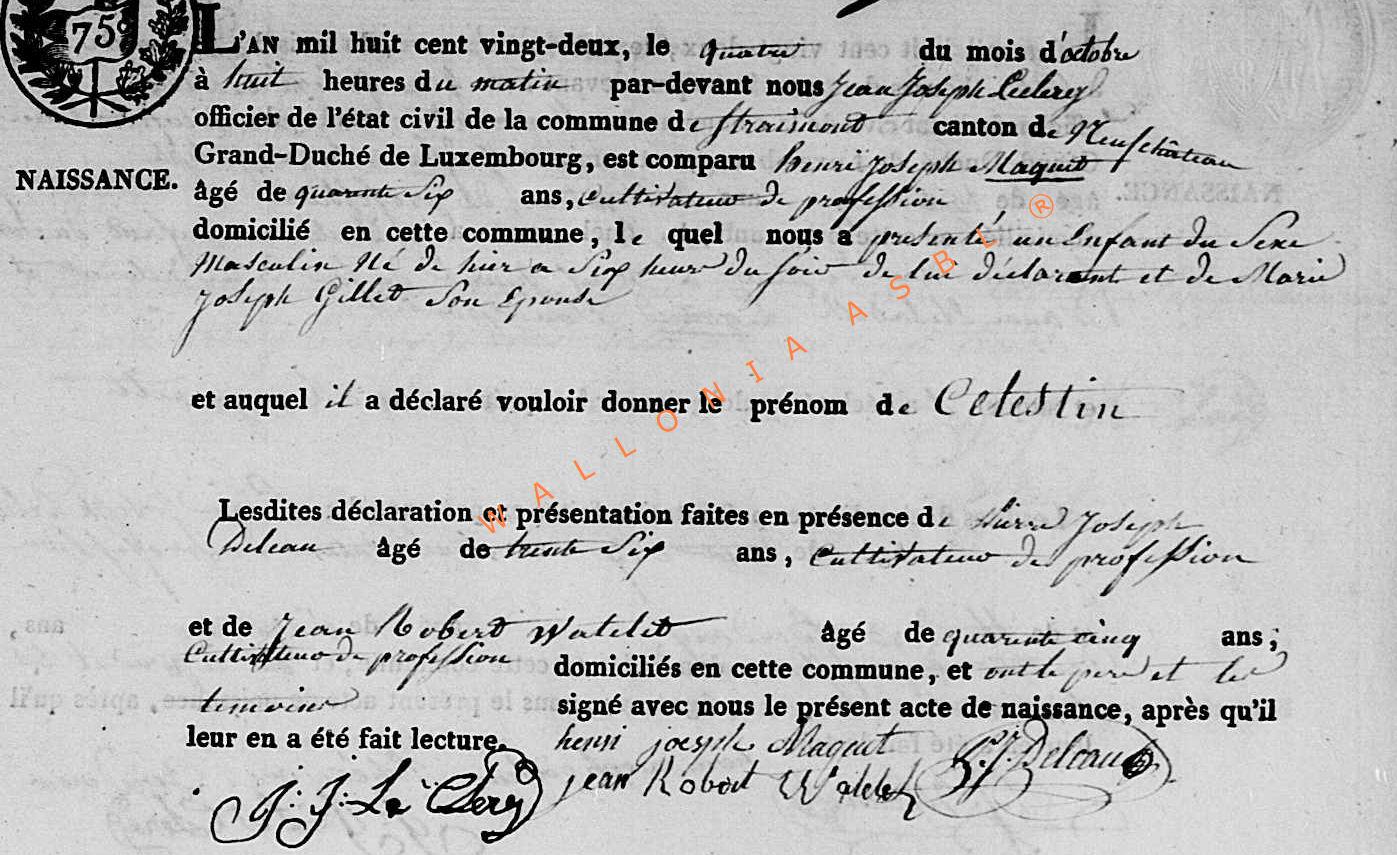 75
L'AN mil huit cent vingt-deux, le quatre du mois d'octobre
à huit heures du matin par-devant nous Jean Joseph Leclerey
officier de l'état civil de la commune de Straimont canton de Neufchâteau
Grand-Duché de Luxembourg, est comparu henri Joseph Maquet
NAISSANCE.
âgé de quarente Six ans, cultivateur de profession
domicilié en cette commune, le quel nous a présenté un Enfant du Sexe
Masculin Né de hier a Six heure du soir de lui déclarant et de Marie
Joseph Gillet Son Epouse
et auquel il a déclaré vouloir donner le prénom de Celestin
Lesdites déclaration et présentation faites en présence de Pierre Joseph
Deleau âgé de trente Six ans, Cultivateur de profession
et de Jean Robert Watelet âgé de quarente cinq ans;
Cultivateur de profession domiciliés en cette commune, et ont le pere et les
temoins signé avec nous le présent acte de naissance, après qu'il
leur en a été fait lecture.
henri joesph Maquet P. J. Deleau
J: J: Le Clerey jean Robert Watelet
WALLONIA ASBL ®